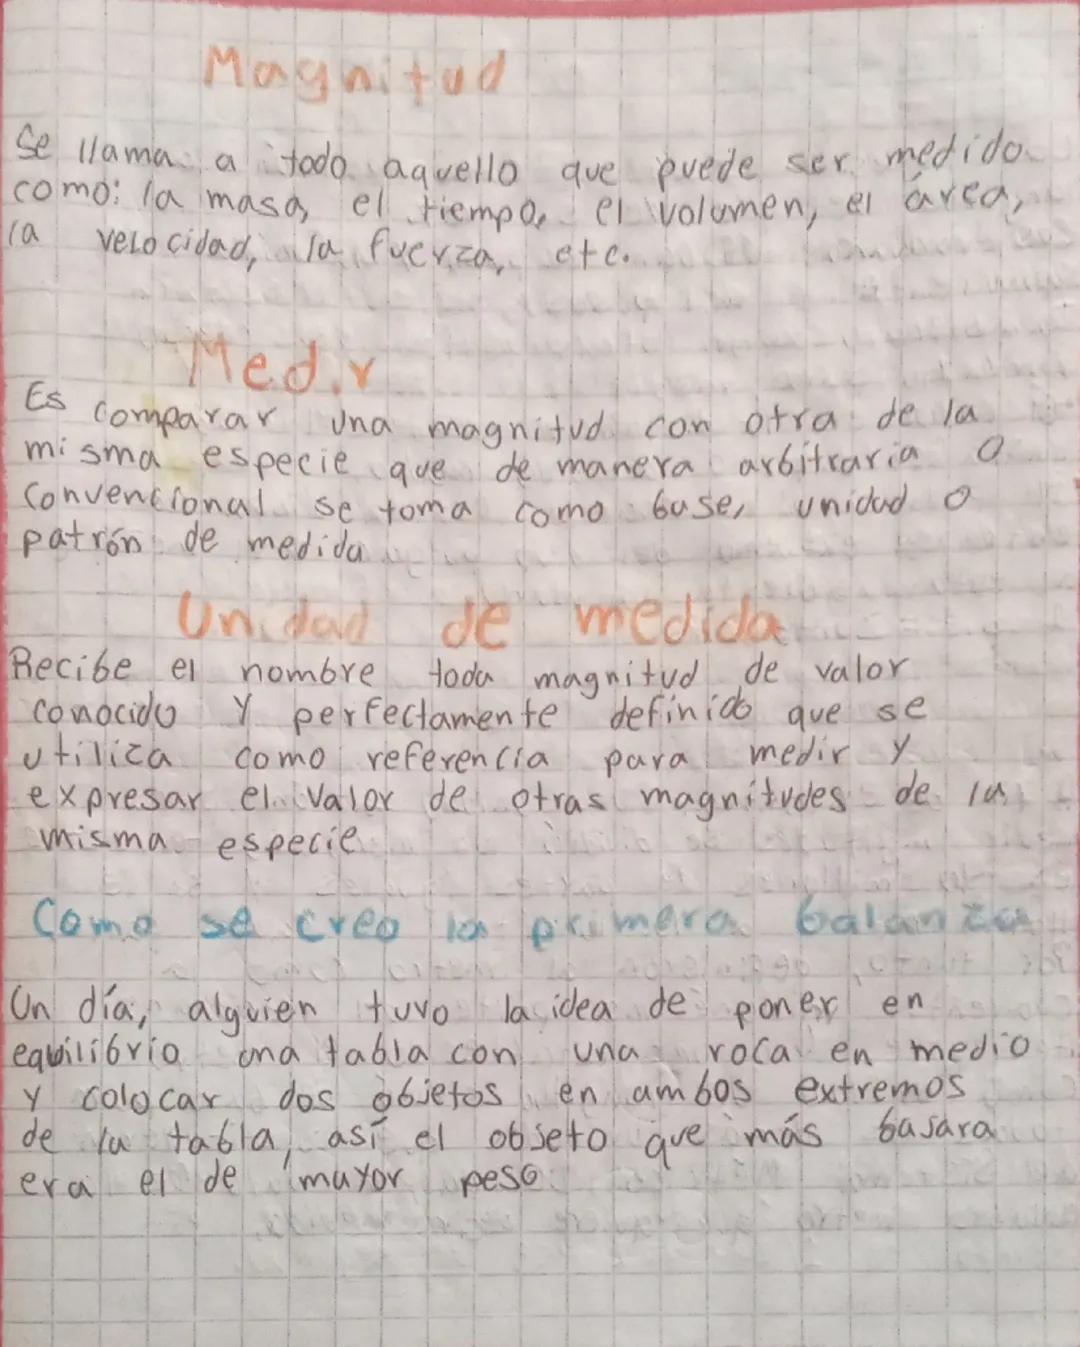 Magnitud
Se llama a todo aquello que puede ser medido
como: la masa, el tiempo, el volumen, el área,
la velocidad, la fuerza, etc.
Medir
Es comparar una magnitud con otra de la
misma especie que de manera arbitraria o
convencional se toma como base, unidad o
patrón de medida
Unidad de medida
Recibe el nombre toda magnitud de valor
conocido y perfectamente definido que se
utiliza como referencia para medir y
expresar el valor de otras magnitudes de la
misma especie
Como se creo la primera balanza
Un día, alguien tuvo la idea de poner en
equilibrio una tabla con una roca en medio
y colocar dos objetos en ambos extremos
de la tabla, así el objeto que más bajara
era el de mayor peso